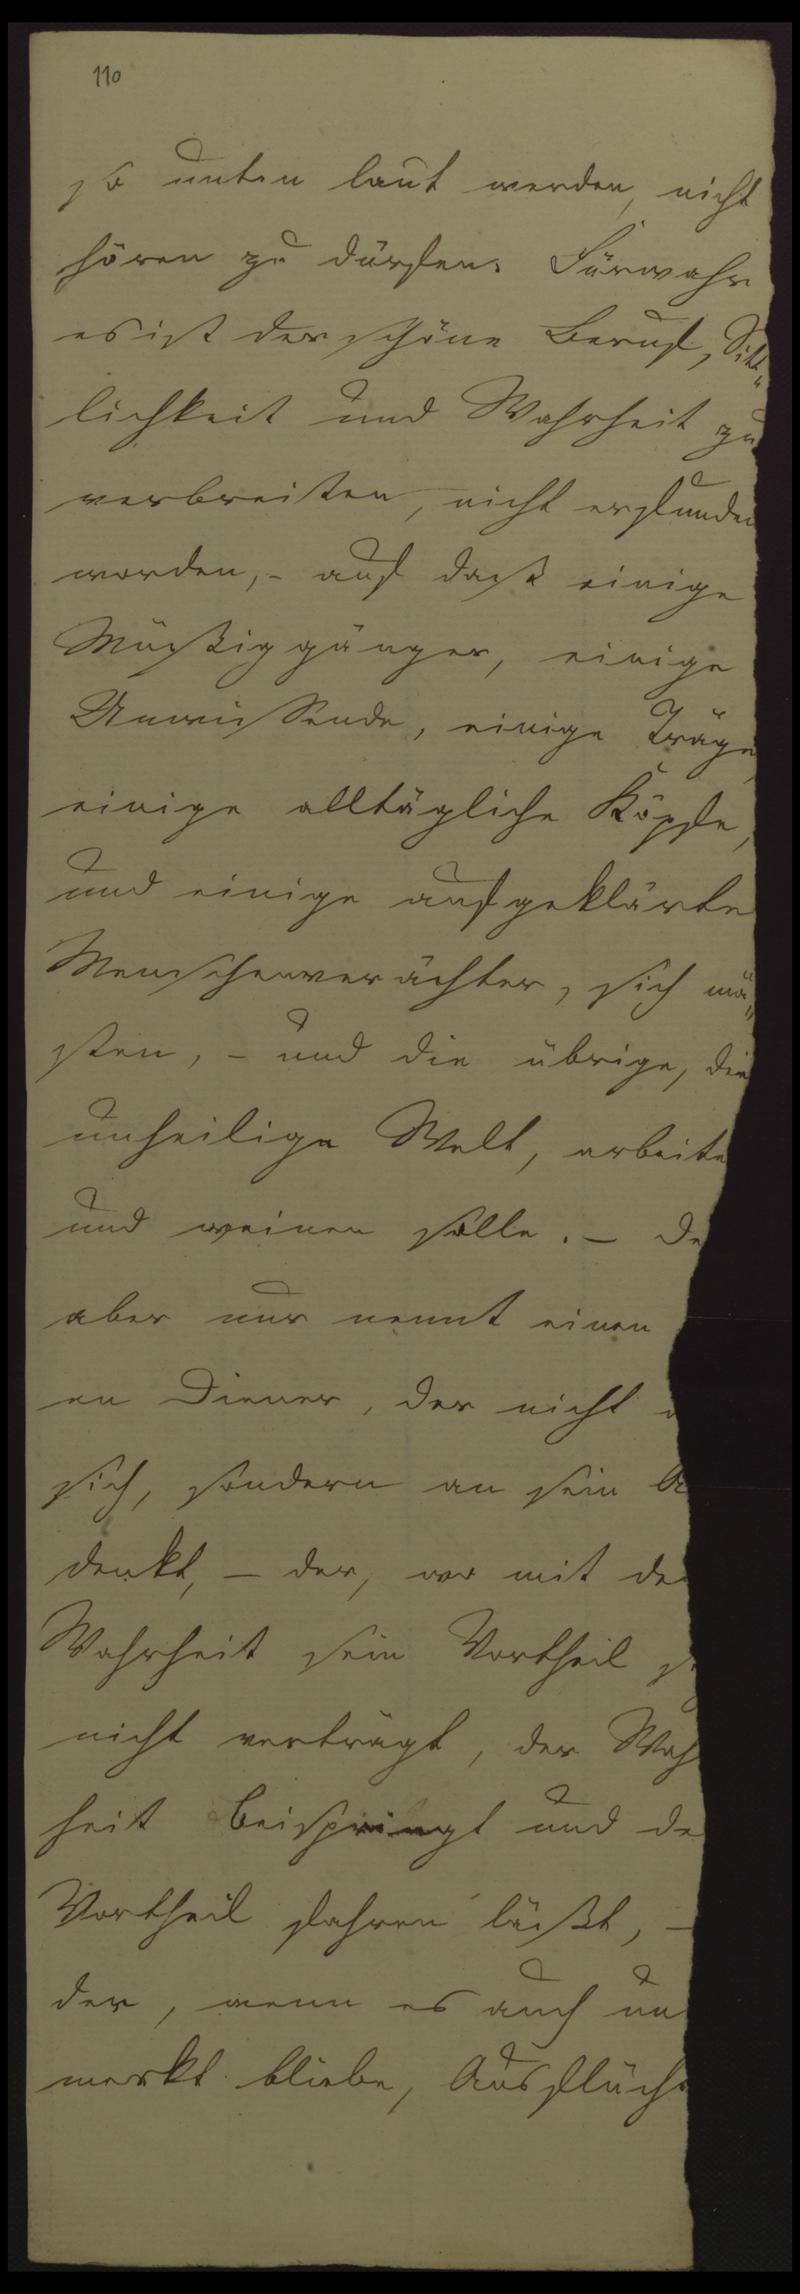 110
so unten laut werden, nicht
hören zu dürfen. Fürwahr
es ist der schöne Beruf, Sitt„
lichkeit und Wahrheit zu
verbreiten, nicht erfunden
worden, - auf daß einige
Müßiggänger, einige
Unwissende, einige Träge,
einige alltägliche Köpfe,
und einige aufgeklärte
Menschenverächter, sich mä„
sten, - und die übrige, die
unheilige Welt, arbeite
und weinen solle. - De
aber nur nennt einen
en Diener, der nicht a
sich, sondern an sein A
denkt, - der, wo mit de
Wahrheit sein Vortheil s
nicht verträgt, der Wah
heit beispringt und de
Vortheil fahren läßt, -
der, wenn es auch un
merkt bliebe, Ausflüch